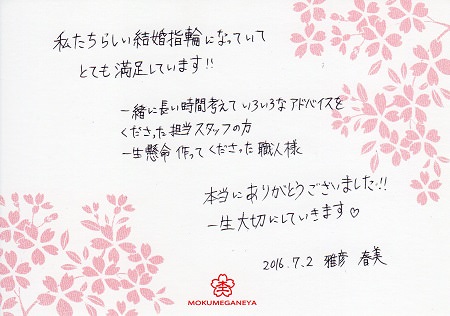 私たちらしい結婚指輪になっていて
とても満足しています!!
一緒に長い時間考えていろいろなアドバイスを
くださった担当スタッフの方
一生懸命作ってくださった職人様
本当にありがとうございました!!
一生大切にしていきます♡
2016.7.2 雅彦 春美
MOKUMEGANEYA